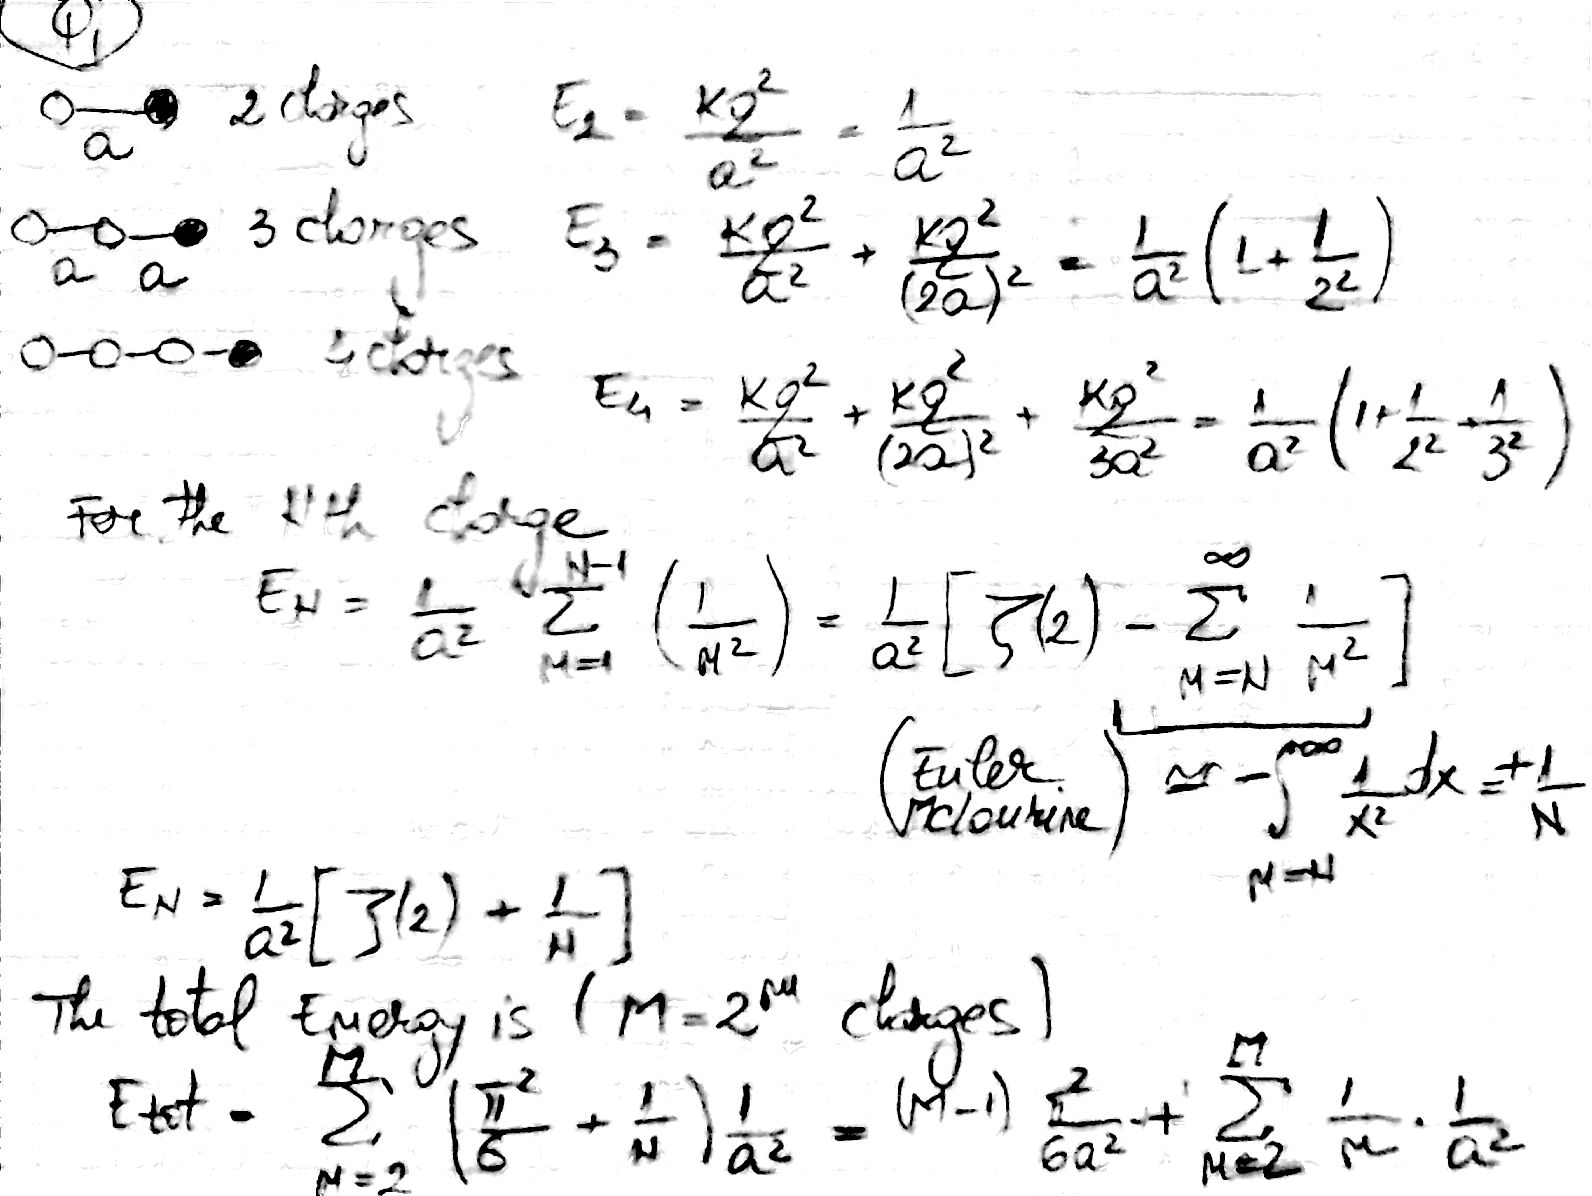 Q1
a 2 charges E₂ = Kq²/a² = 1/a²
a a 3 charges E₃ = Kq²/a² + Kq²/(2a)² = 1/a² (1 + 1/2²)
4 charges
E₄ = Kq²/a² + Kq²/(2a)² + Kq²/3a² = 1/a² (1 + 1/2² + 1/3²)
For the Nth charge
E_N = 1/a² ∑_{n=1}^{N-1} (1/n²) = 1/a² [ζ(2) - ∑_{n=N}^{∞} 1/n²]
(Euler Mclaurine) ≃ -∫_{n=N}^{+∞} 1/x² dx = +1/N
E_N = 1/a² [ζ(2) + 1/N]
The total Energy is (M = 2^m charges)
Etot = ∑_{n=2}^{M} (π²/6 + 1/N) 1/a² = (M-1) π²/6a² + ∑_{n=2}^{M} 1/n · 1/a²